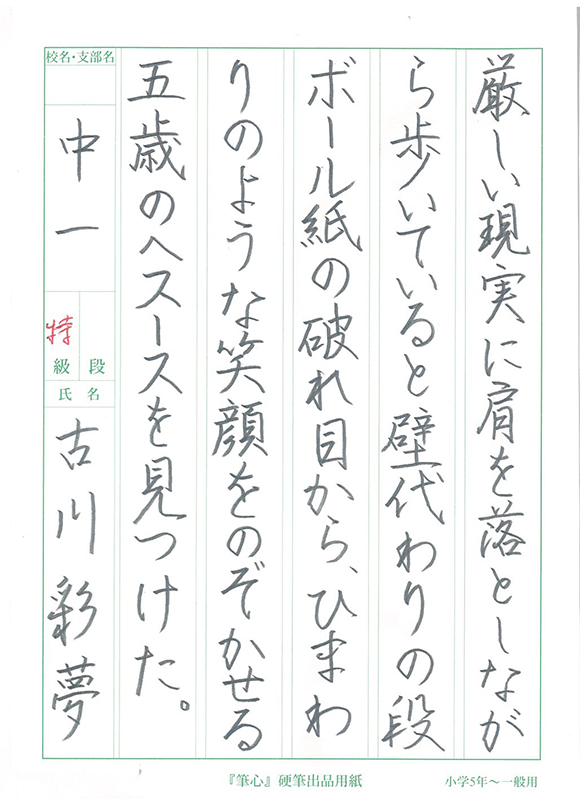 厳しい現実に肩を落としなが
ら歩いていると壁代わりの段
ボール紙の破れ目から、ひまわ
りのような笑顔をのぞかせる
五歳のヘスースを見つけた。
校名・支部名
中一
特
級段
氏名
古川彩夢
『筆心』硬筆出品用紙
小学5年〜一般用